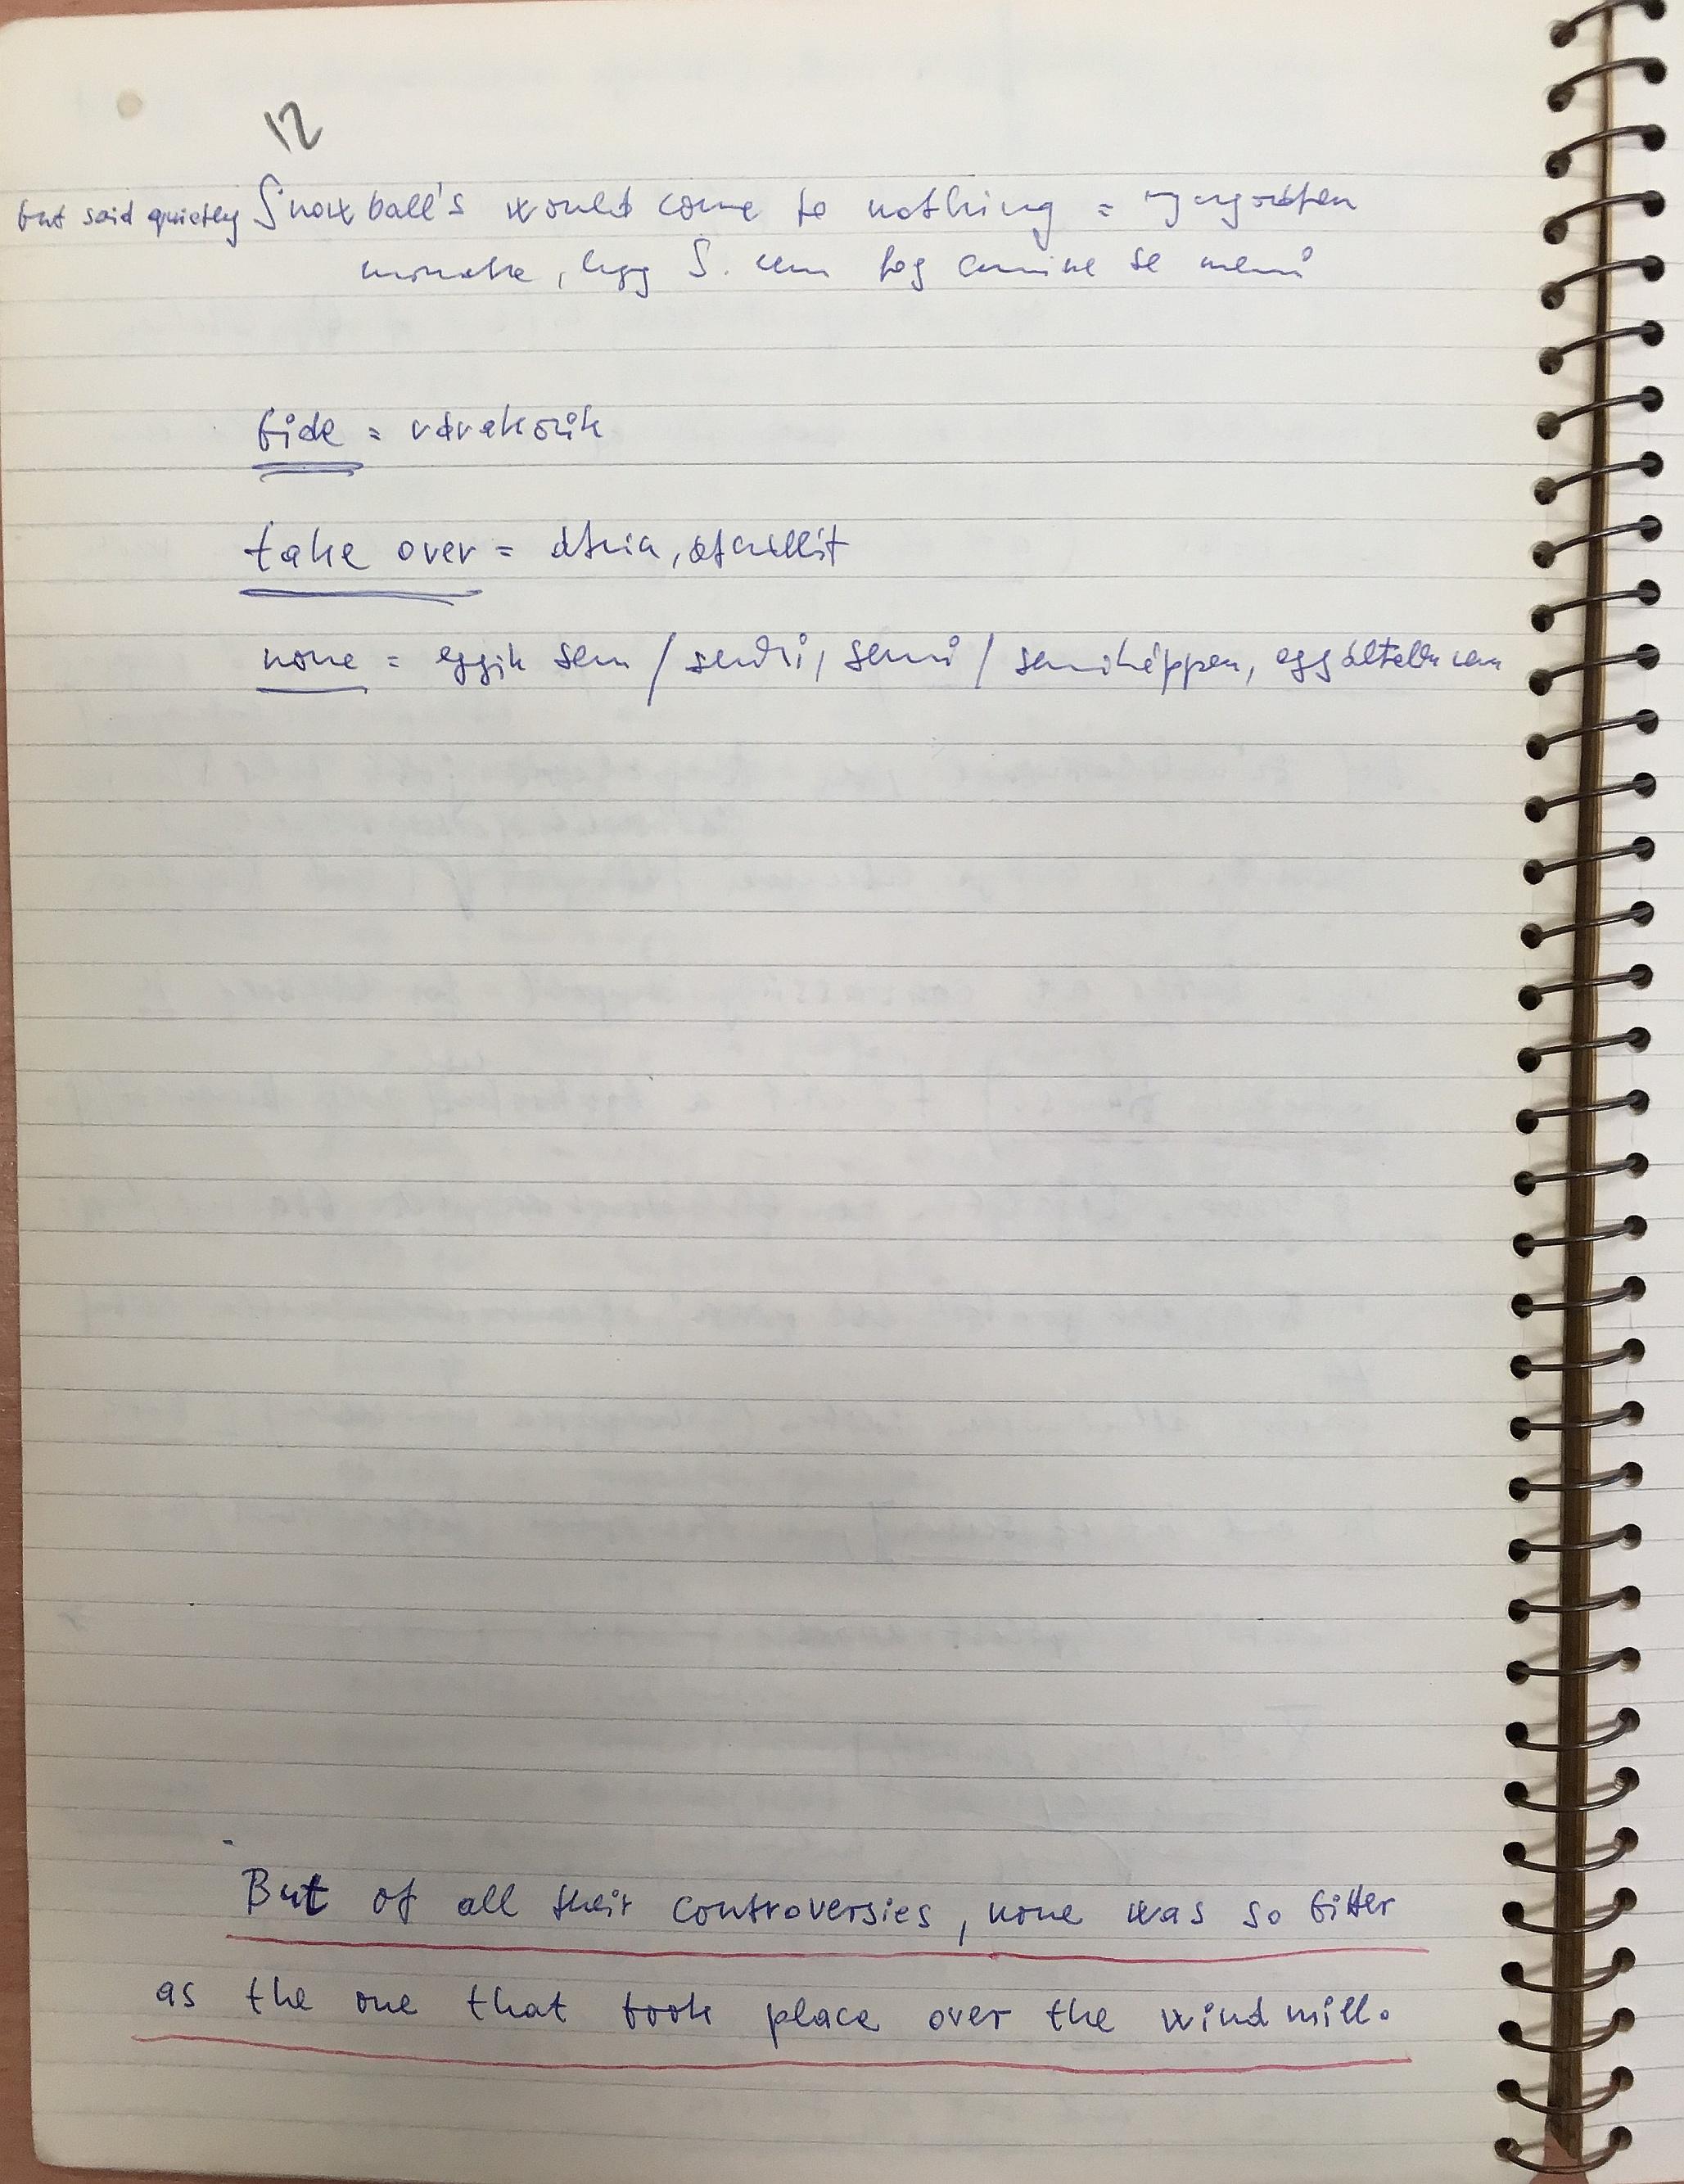 12
but said quietly Snowball's would come to nothing = nyugodtan
mondta, hogy S. nem fog semmire se menni
bide = várakozik
take over = átvia, átszállít
none = egyik sem / senki, semmi / semmiképpen, egyáltalán nem
But of all their controversies, none was so bitter
as the one that took place over the windmill.